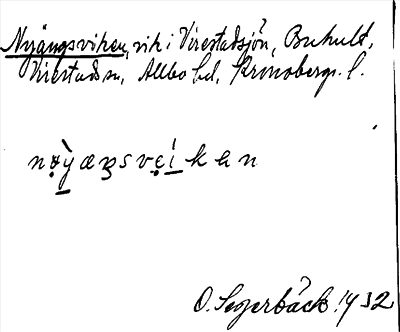 Nyängsviken, vik i Virestadsjön, Bukult,
Virestads sn, Allbo hd, Kronobergs l.
nø̀yæŋsvẹíken
O. Segerbäck 1932